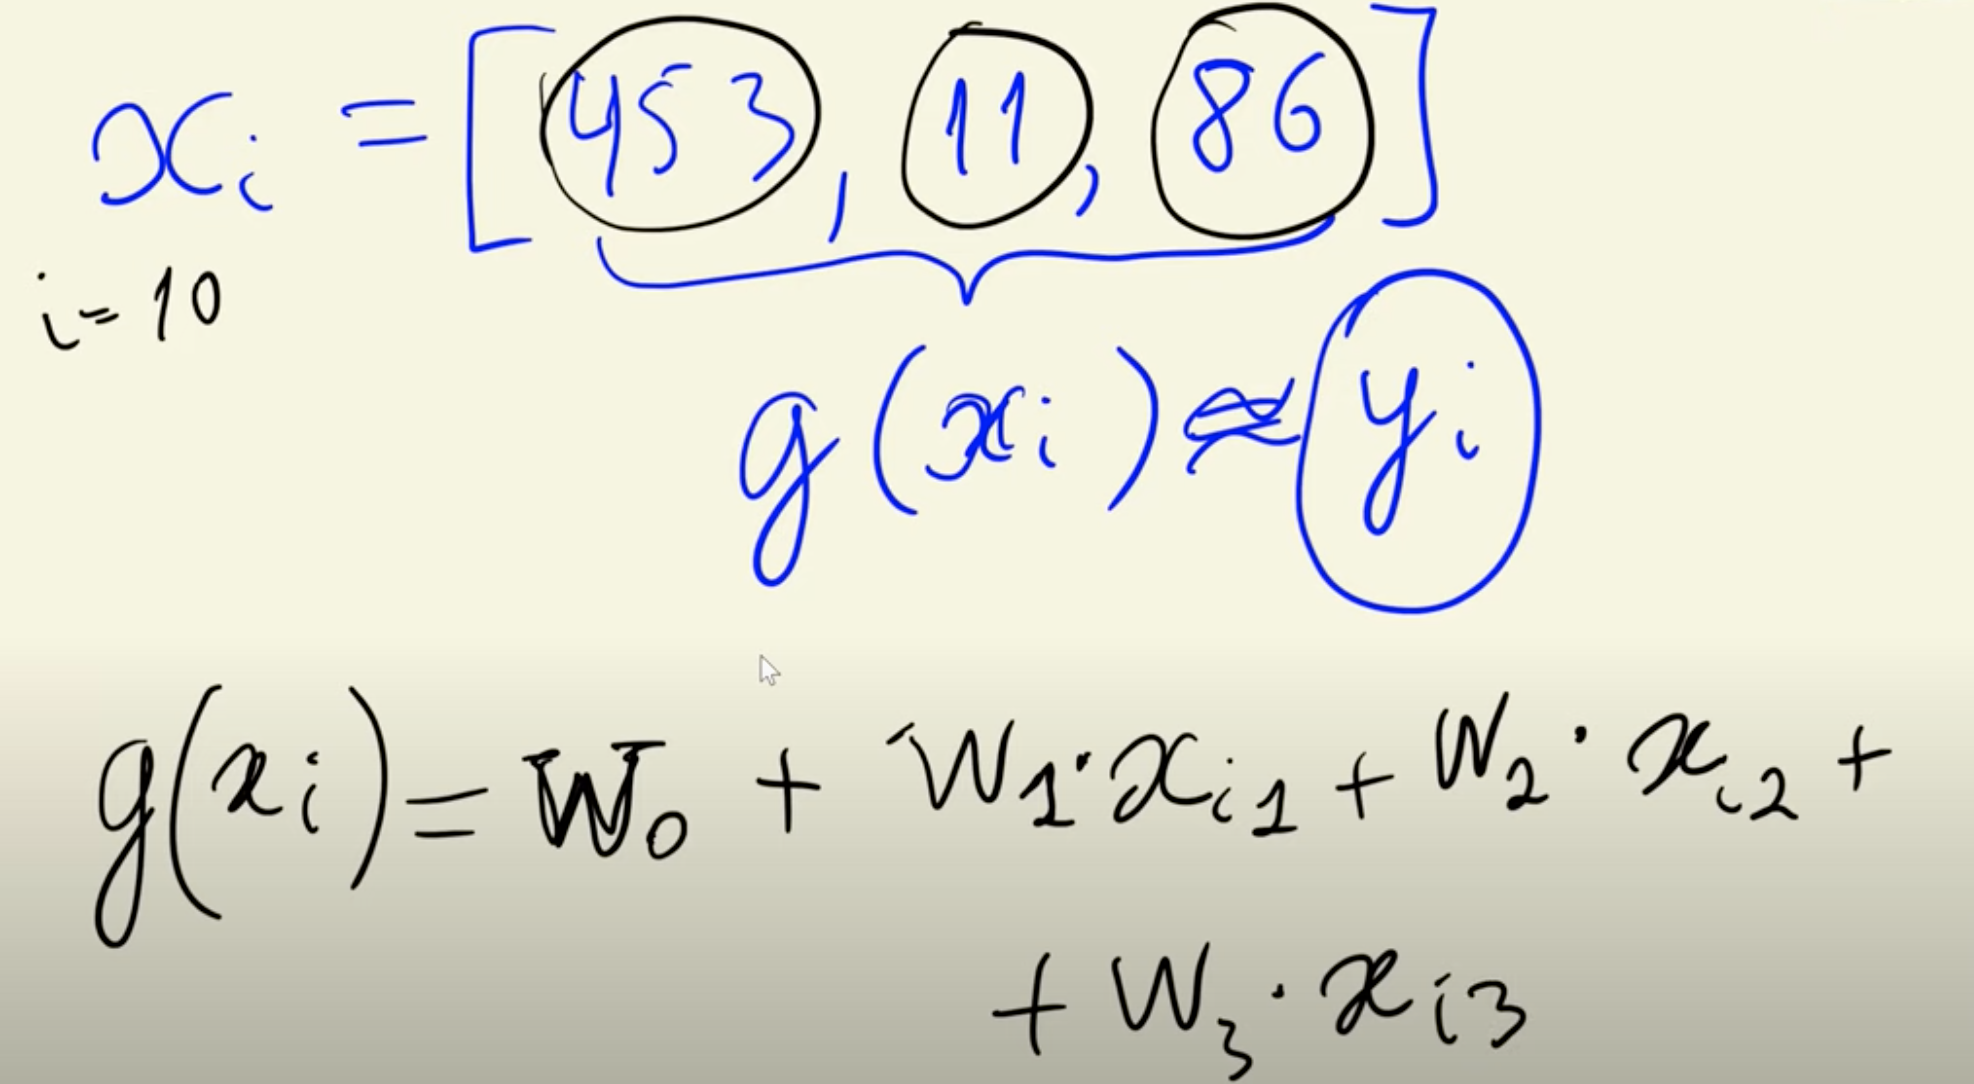 xᵢ = [453, 11, 86]
i = 10
g(xᵢ) ≈ yᵢ
g(xᵢ) = w₀ + w₁·xᵢ₁ + w₂·xᵢ₂ +
+ w₃·xᵢ₃